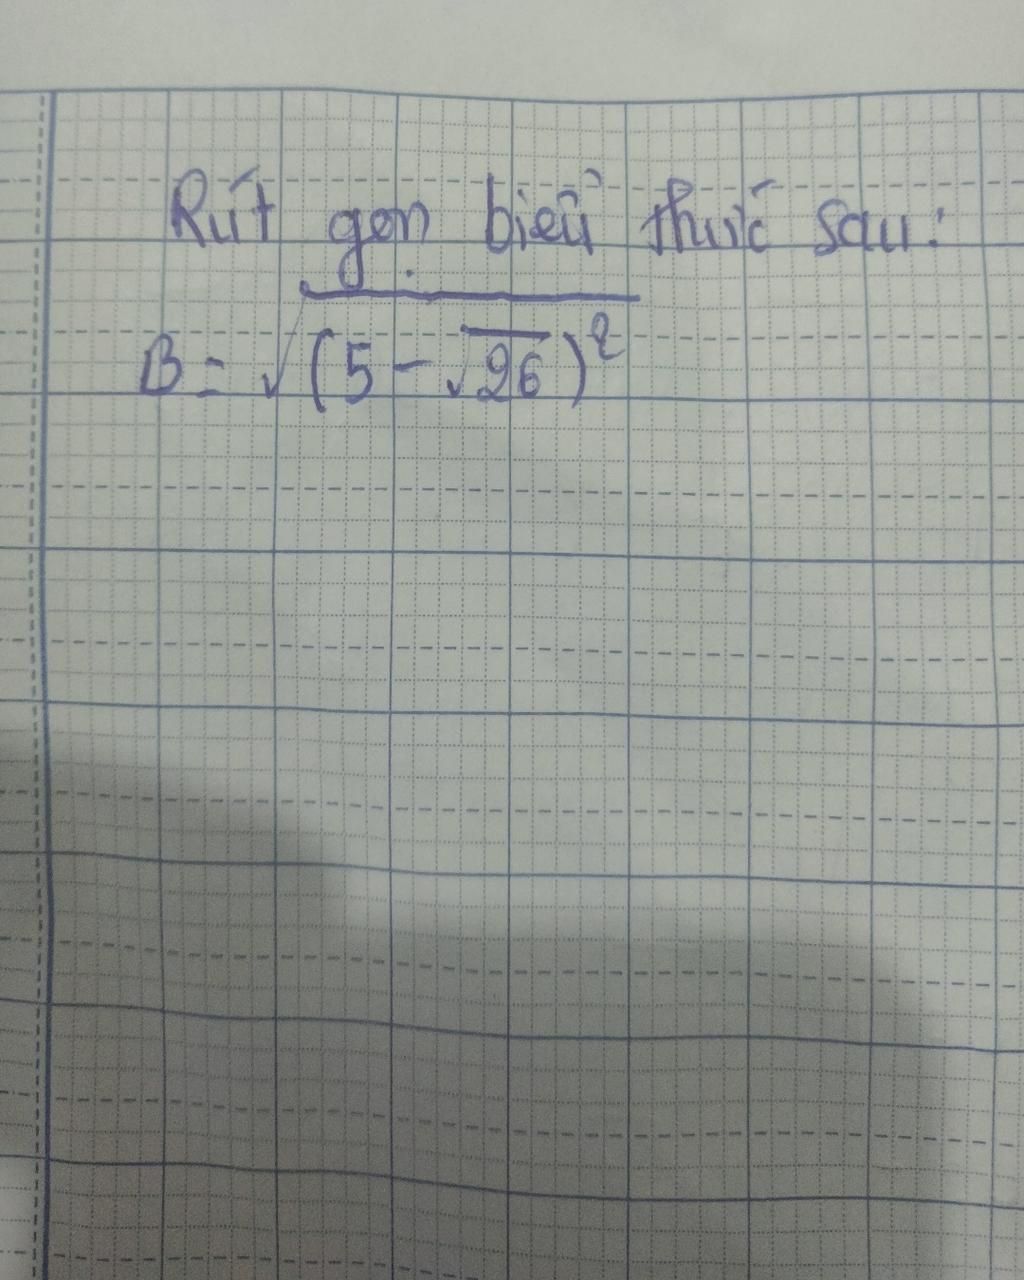 Rút gọn biểu thức sau:
B = √(5 - √26)²